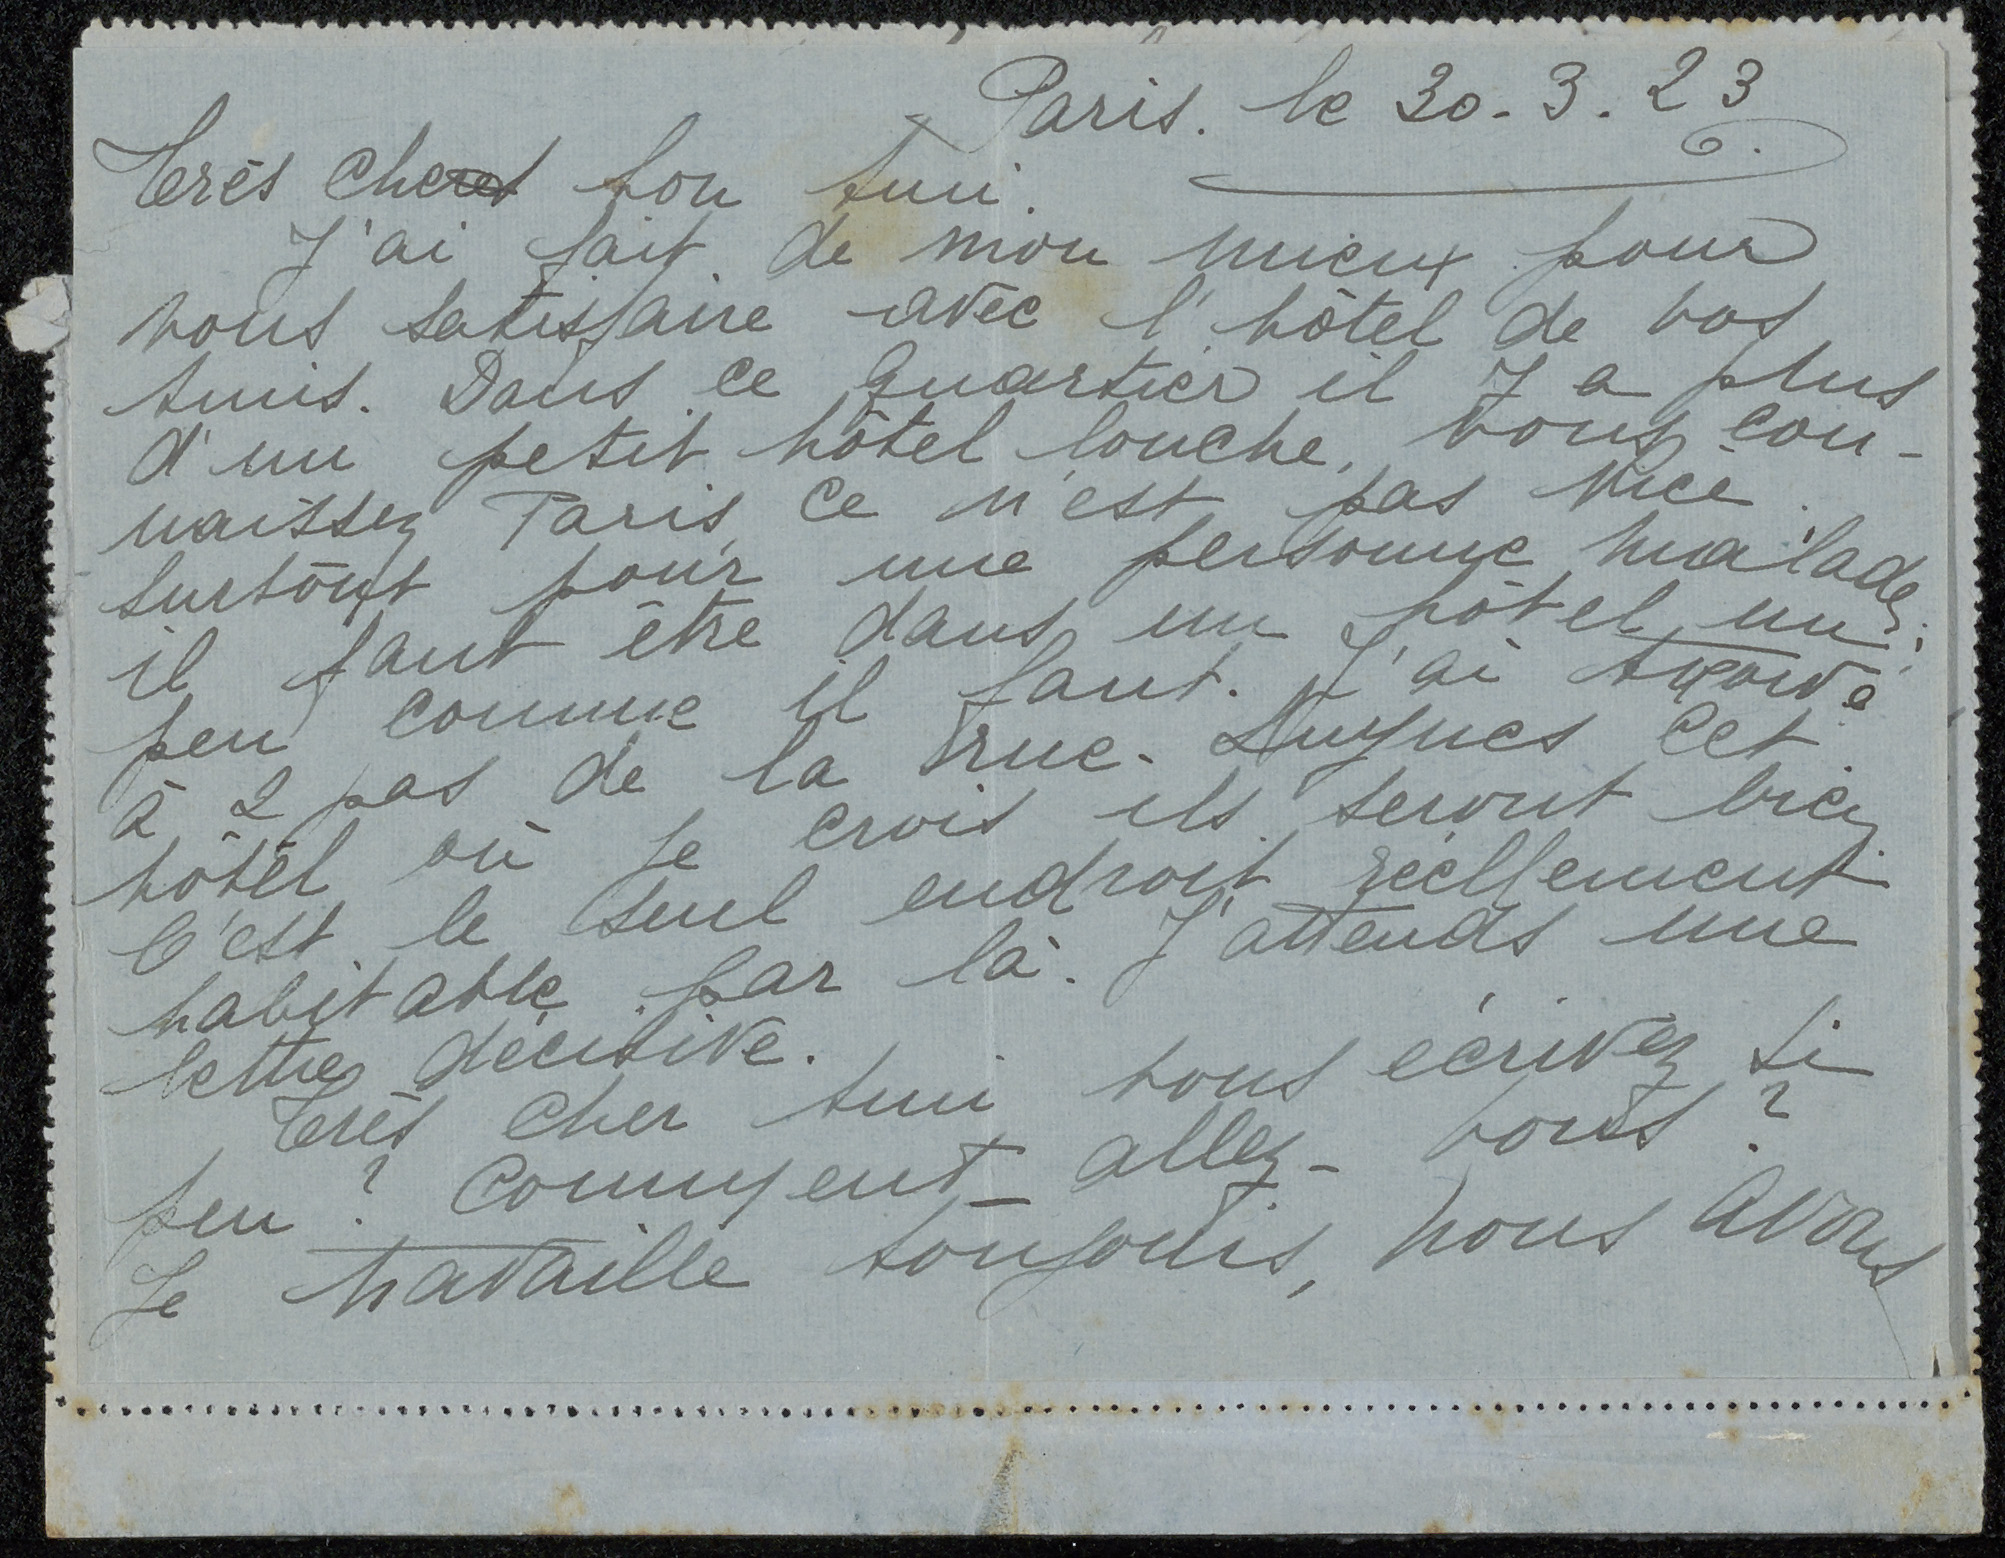 Paris. le 30-3.23
Très cher bon Ami.
J'ai fait de mon mieux pour
vous satisfaire avec l'hôtel de vos
Amis. Dans ce quartier il y a plus
d'un petit hôtel louche, vous con-
naissez Paris, ce n'est pas
surtout pour une personne malade,
il faut être dans un hôtel un
peu comme il faut. J'ai trouvé
à 2 pas de la rue. cet
hôtel où je crois ils seront bien
C'est le seul endroit réellement
habitable par là. J'attends une
lettre décisive.
Très cher Ami vous écrivez si
peu? Comment-allez-vous?
Je travaille toujours, nous avons